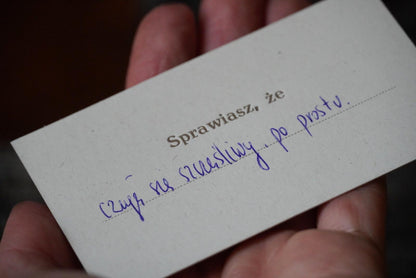 Sprawiasz, że
czuję się szczęśliwy po prostu.